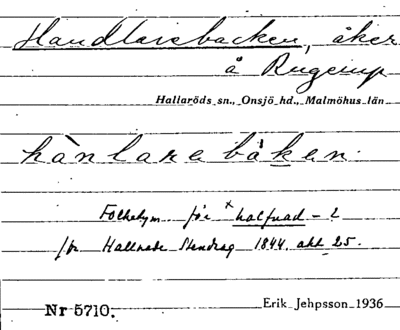 Handlarebacken, åker
å Rugerup
Hallaröds sn., Onsjö hd., Malmöhus län
hànlarebáken.
Folketym. för
Hallaröd 1844. akt 25.
Nr 5710.
Erik Jehpsson 1936